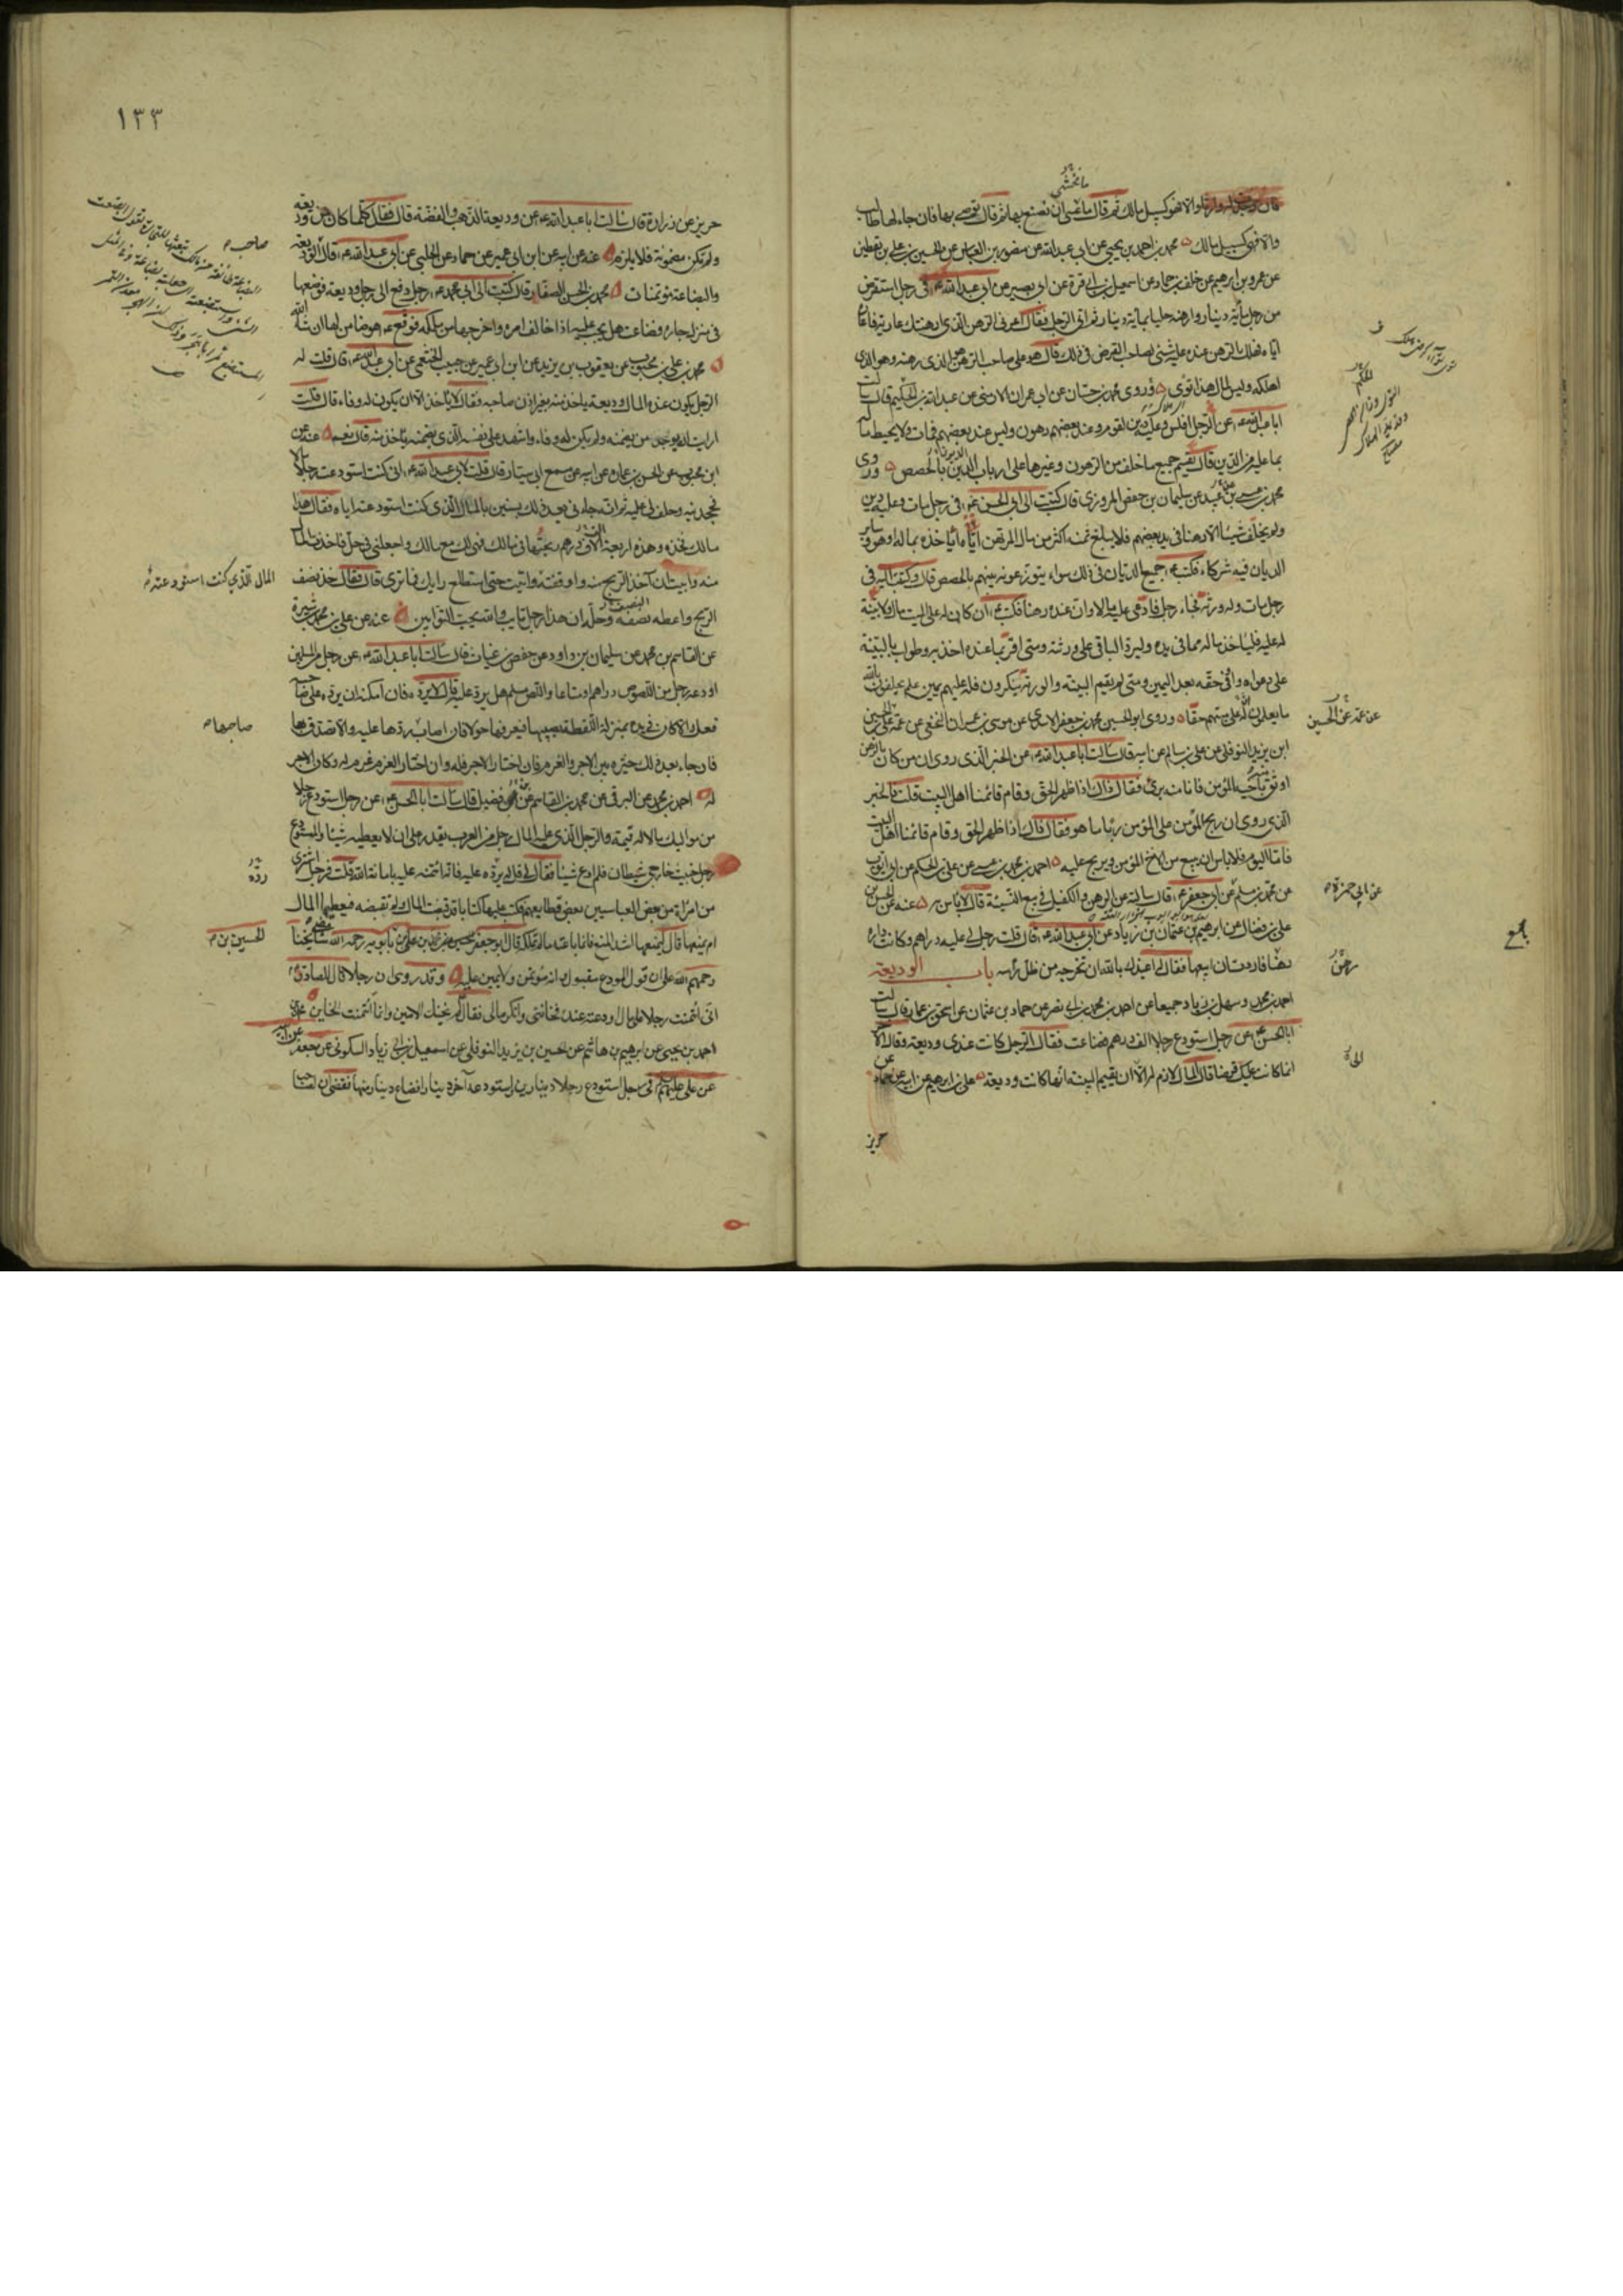 ما تخشى
ثم قال ما تخشى ان تصنع بها ثم قال توصي بها فان جاء لها طالب
والا فهي كسبيل مالك محمد بن احمد بن يحيى عن ابي عبد الله عن منصور بن العباس عن الحسين بن علي بن يقطين
عن عمرو بن ابرهيم عن خلف بن حماد عن اسمعيل بن ابي قرة عن ابي بصير عن ابي عبد الله ع في رجل استقرض
من رجل مأية دينار وارهنه حليا بماية دينار ثم اتى الرجل فقال اعرني الرهن الذي ارهنتك عارية فاعاره
اياه فهلك الرهن عنده عليه شئ لصاحب القرض في ذلك قال هو على صاحب الرهن الذي رهنه وهو الذي
اهلكه وليس لمال هذا توى وروى محمد بن حسان عن ابي عمران الارمني عن عبد الله بن الحكم قال سالت
ابا عبد الله ع عن الرجل افلس وعليه دين لقوم وعند بعضهم رهون وليس عند بعضهم فمات ولا يحيط ماله
بما عليه من الدين قال يقسم جميع ما خلف من الرهون وغيرها على ارباب الدين بالحصص وروى
محمد بن عيسى بن عبيد عن سليمان بن حفص المروزي قال كتبت الى ابي الحسن ع في رجل مات وعليه دين
ولم يخلف شيئا الا رهنا في يد بعضهم فلا يبلغ ثمنه اكثر من مال المرتهن اياخذه بماله او هو وساير
الديان فيه شركاء فكتب ع جميع الديان في ذلك سواء يتوزعونه بينهم بالحصص قال وكتبت اليه في
رجل مات وله ورثة فجاء رجل فادعى عليه مالا وان عنده رهنا فكتب ع ان كان له على الميت مال ولا بينة
له عليه فلياخذ ماله مما في يده وليرد الباقي على ورثته ومتى اقر بما عنده اخذ به وطولب بالبينة
على دعواه واوفى حقه بعد اليمين ومتى لم يقم البينة والورثة ينكرون فله عليهم يمين علم يحلفون بالله
ما يعلمون ان له على ميتهم حقا وروى ابو الحسين محمد بن جعفر الاسدي عن موسى بن عمران النخعي عن عمه الحسين
عن عمه عن الحسين
ابن يزيد النوفلي عن علي بن سالم عن ابيه قال سالت ابا عبد الله ع عن الخبر الذي روي ان من كان بالرهن
اوثق منه باخيه المؤمن فانا منه برئ فقال ذاك اذا ظهر الحق وقام قائمنا اهل البيت قلت فالخبر
الذي روي ان ربح المؤمن على المؤمن ربا ما هو فقال ذاك اذا ظهر الحق وقام قائمنا اهل البيت
فاما اليوم فلا باس ان يبيع من الاخ المؤمن ويربح عليه احمد بن محمد بن عيسى عن علي بن الحكم عن ابي ايوب
عن ابي حمزة
عن محمد بن مسلم عن ابي جعفر ع قال سالته عن الرهن والكفيل في بيع النسية قال لا باس به عنه عن الحسن بن
علي بن فضال عن ابرهيم بن عثمان بن زياد عن ابي عبد الله ع قال قلت رجل لي عليه دراهم وكانت داره
رهنا فاردت ان ابيعها فقال اعيذك بالله ان تخرجه من ظل راسه باب الوديعة
رهن
احمد بن محمد وسهل بن زياد جميعا عن احمد بن محمد بن ابي نصر عن حماد بن عثمان عن اسحق بن عمار قال سالت
ابا الحسن ع عن رجل استودع رجلا الف درهم فضاعت فقال الرجل كانت عندي وديعة وقال الاخر
انما كانت عليك قرضا قال المال لازم له الا ان يقيم البينة انها كانت وديعة علي بن ابرهيم عن ابيه عن حماد عن
حريز
١٣٣
حريز عن زرارة قال سالت ابا عبد الله ع عن وديعة الذهب والفضة قال فقال كلما كان من وديعة
ولم تكن مضمونة فلا يلزم عنه عن ابيه عن ابن ابي عمير عن حماد عن الحلبي عن ابي عبد الله ع قال الوديعة
صاحب
والبضاعة مؤتمنان محمد بن الحسن الصفار قال كتبت الى ابي محمد ع رجل دفع الى رجل وديعة فوضعها
في منزل جاره فضاعت هل يجب عليه اذا خالف امره واخرجها من ملكه فوقع ع هو ضامن لها ان شاء الله
محمد بن علي بن محبوب عن يعقوب بن يزيد عن ابن ابي عمير عن حبيب الخثعمي عن ابي عبد الله ع قال قلت له
الرجل يكون عنده المال وديعة ياخذ منه بغير اذن صاحبه فقال لا ياخذ الا ان يكون له وفاء قال قلت
ارايت ان وجد من يضمنه ولم يكن له وفاء واشهد على نفسه الذي يضمنه ياخذ منه قال نعم عنه عن
ابن محبوب عن الحسن بن عماره عن ابيه عن مسمع ابي سيار قال قلت لابي عبد الله ع اني كنت استودعت رجلا مالا
فجحدنيه وحلف لي عليه ثم انه جاءني بعد ذلك بسنين بالمال الذي كنت استودعته اياه فقال هذا
مالك فخذه وهذه اربعة الاف درهم ربحتها في مالك فهي لك مع مالك واجعلني في حل فاخذت المال
المال الذي كنت استودعته
منه وابيت ان آخذ الربح منه واوقفته واتيت حتى استطلع رايك فما ترى قال فقال خذ نصف
الربح واعطه نصفه وحله ان هذا رجل تايب والله يحب التوابين عنه عن علي بن محمد بن شيرة
عن القاسم بن محمد عن سليمان بن داود عن حفص بن غياث قال سالت ابا عبد الله ع عن رجل من المسلمين
اودعه رجل من اللصوص دراهم او متاعا واللص مسلم هل يرد عليه قال لا يرده فان امكنه ان يرده على صاحبه
صاحبها
فعل والا كان في يده بمنزلة اللقطة يصيبها فيعرفها حولا فان اصاب ردها عليه والا تصدق بها
فان جاء بعد ذلك خيره بين الاجر والغرم فان اختار الاجر فله وان اختار الغرم غرم له وكان الاجر
له احمد بن محمد عن البرقي عن محمد بن القاسم عن فضيل قال سالت ابا الحسن ع عن رجل استودع رجلا
من مواليك مالا له قيمة والرجل الذي عليه المال رجل من العرب يقدر على ان لا يعطيه شيئا والمستودع
رجل خبيث خارجي شيطان فلم ادع شيئا فقال لي قل له يرده عليه فانه ائتمنه عليه بامانة الله قلت فرجل اشترى
رده
من امراة من بعض العباسيين بعض قطايعهم فكتب عليها كتابا قد قبضت المال ولم تقبضه فيعطيها المال
ام يمنعها قال ليمنعها اشد المنع فانما باعته ما لم تملكه قال ابو جعفر محمد بن علي بن الحسين بن بابويه رحمه الله مضى مشايخنا
الحسين بن
رحمهم الله على ان قول المودع مقبول وانه مؤتمن ولا يمين عليه وقد روي ان رجلا قال للصادق ع
اني ائتمنت رجلا على مال اودعته عنده فخانني وانكر مالي فقال لم يخنك الامين وانما ائتمنت الخاين محمد بن
احمد بن يحيى عن ابرهيم بن هاشم عن الحسين بن يزيد النوفلي عن اسمعيل بن ابي زياد السكوني عن جعفر عن ابيه
عن علي عليهم السلام في رجل استودع رجلا دينارين واستودعه آخر دينارا فضاع دينار منها فقضى ان لصاحب